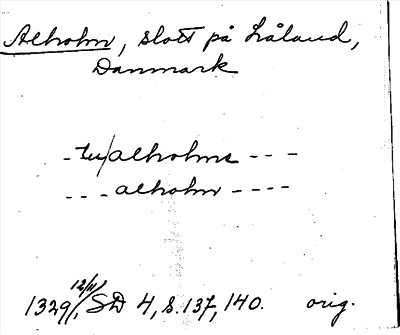 Alholm, slott på Låland,
Danmark
- tu/alholms - - -
- - - alholm - - - -
1329 12/11, SD 4, s. 137, 140. orig.